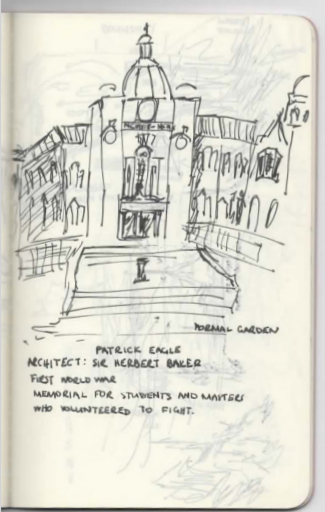 FORMAL GARDEN
PATRICK EAGLE
ARCHITECT: SIR HERBERT BAKER
FIRST WORLD WAR
MEMORIAL FOR STUDENTS AND MASTERS
WHO VOLUNTEERED TO FIGHT.